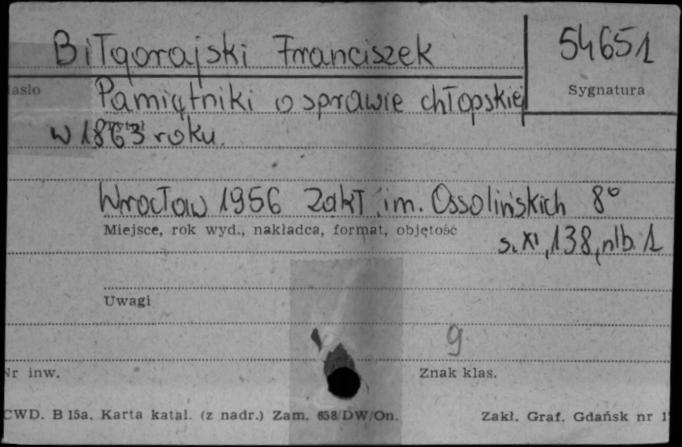 Biłgorajski Franciszek 54651
asło Sygnatura
Pamiętniki o sprawie chłopskiej
w 1863 roku.
Wrocław 1956 Zakł. im. Ossolińskich 8°
Miejsce, rok wyd., nakładca, format, objętość
s. XI, 138, nlb. 1
Uwagi
9
Nr inw. Znak klas.
CWD. B 15a. Karta katal. (z nadr.) Zam. 658/DW/On. Zakł. Graf. Gdańsk nr 1